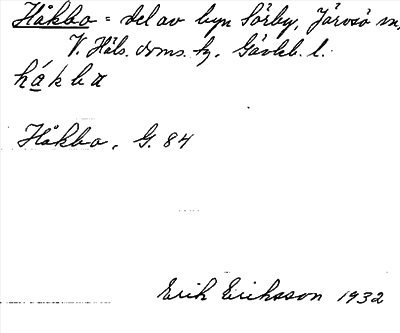 Håkbo = del av byn Sörby, Järvsö sn,
V. Häls. doms. tg. Gävleb. l.
håkba
Håkbo, G. 84
Erik Eriksson 1932